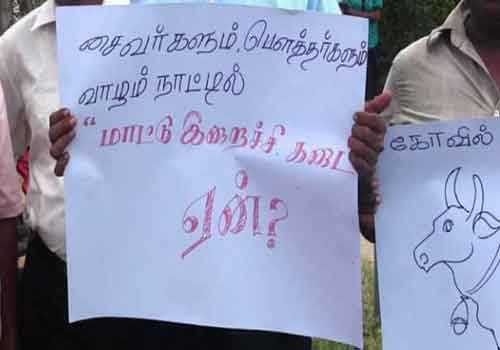 சைவர்களும், பௌத்தர்களும்
வாழும் நாட்டில்
"மாட்டு இறைச்சி கடை
ஏன்?
கோவில்